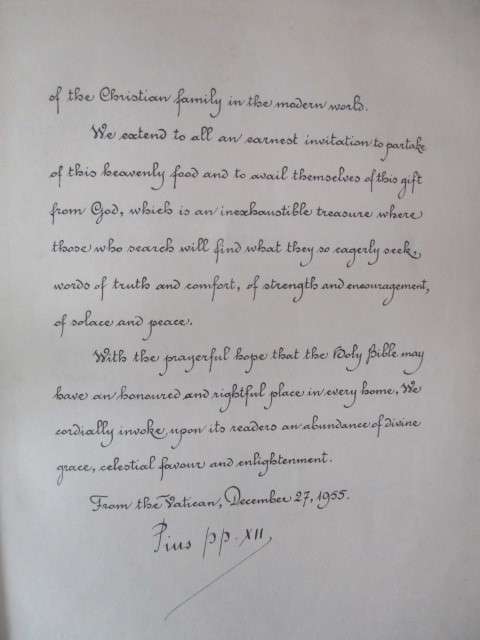 of the Christian family in the modern world.
We extend to all an earnest invitation to partake
of this heavenly food and to avail themselves of this gift
from God, which is an inexhaustible treasure where
those who search will find what they so eagerly seek,
words of truth and comfort, of strength and encouragement,
of solace and peace.
With the prayerful hope that the Holy Bible may
have an honoured and rightful place in every home, We
cordially invoke upon its readers an abundance of divine
grace, celestial favour and enlightenment.
From the Vatican, December 27, 1955.
Pius pp. XII,